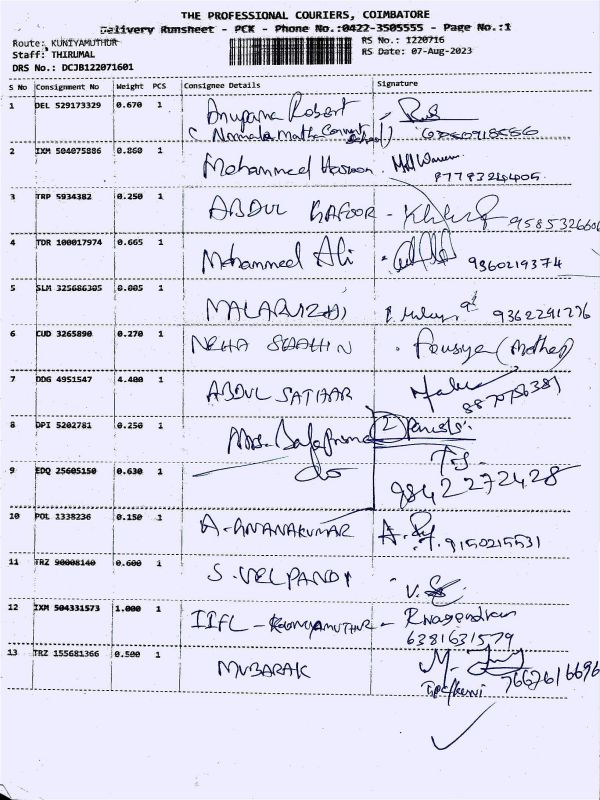 THE PROFESSIONAL COURIERS, COIMBATORE
Delivery Runsheet - PCK - Phone No.:0422-3505555 - Page No.:1
Route: KUNIYAMUTHUR
RS No.: 1220716
Staff: THIRUMAL
RS Date: 07-Aug-2023
DRS No.: DCJB122071601
S No Consignment No Weight PCS Consignee Details Signature
1 DEL 529173329 0.670 1 Anupama Robert
2 IXM 504075886 0.860 1 Mohammeed
8778324405
3 TRP 5934382 0.250 1 ABDUL GAFOOR - 9585326606
4 TDR 100017974 0.665 1 Mohammeed Ali 9360219374
5 SLM 325686305 0.005 1 MALARVIZHI 9362291276
6 CUD 3265890 0.270 1 NEHA SHAHIN . Fousiya (Mother)
7 DDG 4951547 4.400 1 ABDUL SATHAR
8870756381
8 DPI 5202781 0.250 1 Mrs. (2)
9 EDQ 25605150 0.630 1 do
9842272428
10 POL 1338236 0.150 1 A. GNANAKUMAR 9150215531
11 TRZ 90008140 0.600 1 S. VELPANDI
12 IXM 504331573 1.000 1 IIFL - KUNIYAMUTHUR - R. Nagendran
6381631579
13 TRZ 155681366 0.500 1 MUBARAK 7667616696